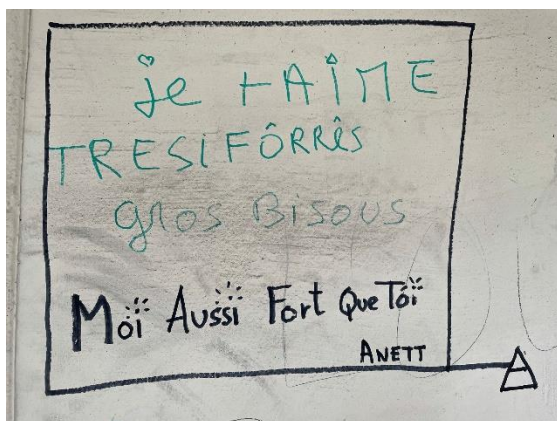 je t AiME
TRESIFÔRRÊS
gros Bisous
Moi Aussi Fort Que Toi
ANETT